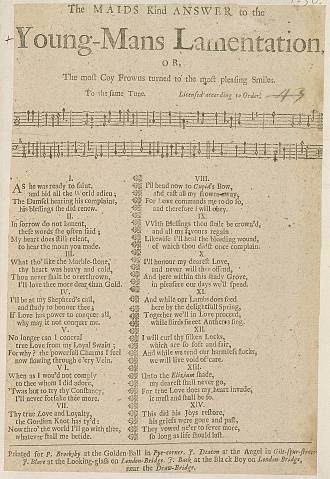 The MAIDS Kind ANSWER to the
Young-Mans Lamentation,
OR,
The most Coy Frowns turned to the most pleasing Smiles.
To the same Tune. Licensed according to Order.
I.
As he was ready to faint,
and bid all the World adieu;
The Damsel hearing his complaint,
his blessings she did renew.
II.
In sorrow do not lament,
these words she often said;
My heart does still relent,
to hear the moan you made.
III.
What tho' like the Marble-stone,
thy heart was heavy and cold,
Thou never shalt be overthrown,
I'll love thee more dear than Gold.
IV.
I'll be at my Shepherd's call,
and study to honour thee;
If Love has power to conquer all,
why may it not conquer me.
V.
No longer can I conceal
true Love from my Loyal Swain;
For why? the powerfull Charms I feel
now flowing through e'ry Vein.
VI.
When as I wou'd not comply
to thee whom I did adore,
'Twas but to try thy Constancy,
I'll never forsake thee more.
VII.
Thy true Love and Loyalty,
the Gordion Knot has ty'd;
Now tho' the world I'll go with thee,
whatever shall me betide.
VIII.
I'll bend now to Cupid's Bow,
and cast all my frowns away,
For Love commands me to do so,
and therefore I will obey.
IX.
With Blessings thou shalt be crown'd,
and all my favours regain
Likewise I'll heal the bleeding wound,
of which thou didst once complain.
X.
I'll honour my dearest Love,
and never will thee offend,
And here within this silent Grove,
in pleasure our days we'll spend.
XI.
And while our Lambs does feed
here by the delightful Spring,
Together we'll in Love proceed,
while birds sweet Anthems sing.
XII.
I will curl thy silken Locks,
which are so soft and fair,
And while we tend our harmless flocks,
we will live void of care.
XIII.
Unto the Elizium shade,
my dearest shall never go,
For true Love does my heart invade,
it must and shall be so.
XIV.
This did his Joys restore,
his griefs were gone and past,
They vowed ne'er to sever more,
so long as life should last.
Printed for P. Brooksby at the Golden-Ball in Pye-corner. J. Deacon at the Angel in Gilt-spur-street.
J. Blare at the Looking-glass on London-Bridge. J. Back at the Black Boy on London-Bridge,
near the Draw-Bridge.